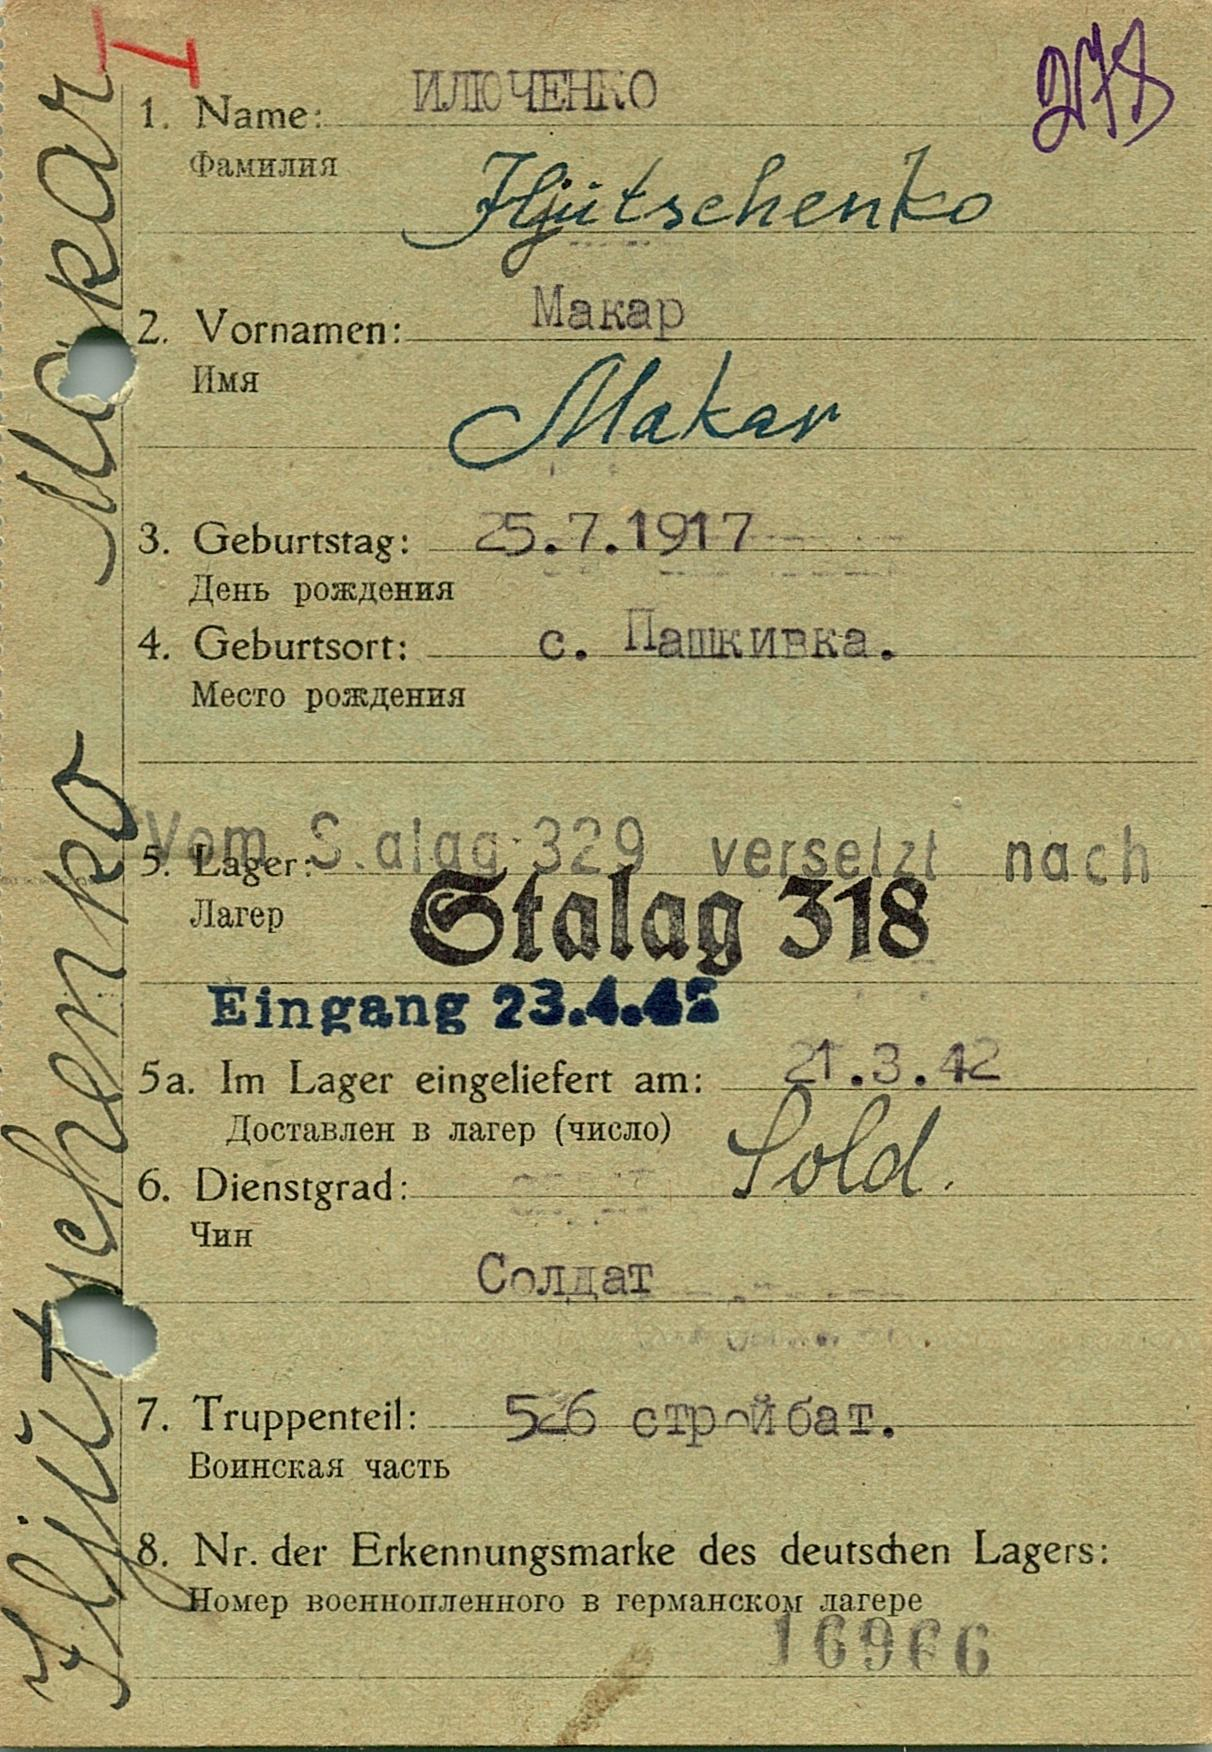 I
278
ИЛЮЧЕНКО
1. Name:
Фамилия
Iljütschenko
Макар
2. Vornamen:
Имя
Makar
3. Geburtstag: 25.7.1917
День рождения
4. Geburtsort: с. Пашкивка.
Место рождения
Vom S.alag 329 versetzt nach
5. Lager:
Лагер
Stalag 318
Eingang 23.4.42
5a. Im Lager eingeliefert am: 21.3.42
Доставлен в лагер (число)
6. Dienstgrad: Sold.
Чин
Солдат
7. Truppenteil: 526 стройбат.
Воинская часть
8. Nr. der Erkennungsmarke des deutschen Lagers:
Номер военнопленного в германском лагере
16966
Iljütschenko Makar